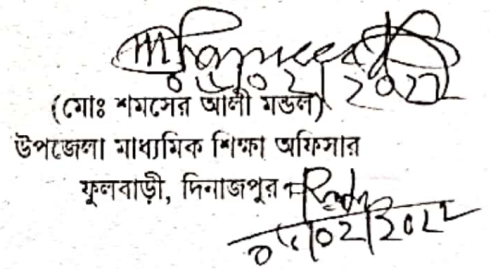 ০৬/০২/২০২২
(মোঃ শমসের আলী মন্ডল)
উপজেলা মাধ্যমিক শিক্ষা অফিসার
ফুলবাড়ী, দিনাজপুর।
/০২/২০২২